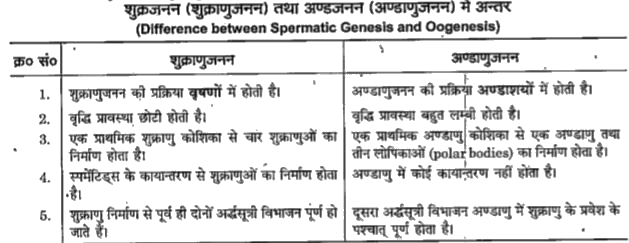 शुक्रजनन (शुक्राणुजनन) तथा अण्डजनन (अण्डाणुजनन) में अन्तर
(Difference between Spermatic Genesis and Oogenesis)
क्र० सं० शुक्राणुजनन अण्डाणुजनन
1. शुक्राणुजनन की प्रक्रिया वृषणों में होती है। अण्डाणुजनन की प्रक्रिया अण्डाशयों में होती है।
2. वृद्धि प्रावस्था छोटी होती है। वृद्धि प्रावस्था बहुत लम्बी होती है।
3. एक प्राथमिक शुक्राणु कोशिका से चार शुक्राणुओं का एक प्राथमिक अण्डाणु कोशिका से एक अण्डाणु तथा
निर्माण होता है। तीन लोपिकाओं (polar bodies) का निर्माण होता है।
4. स्पर्मेटिड्स के कायान्तरण से शुक्राणुओं का निर्माण होता अण्डाणु में कोई कायान्तरण नहीं होता है।
है।
5. शुक्राणु निर्माण से पूर्व ही दोनों अर्द्धसूत्री विभाजन पूर्ण हो दूसरा अर्द्धसूत्री विभाजन अण्डाणु में शुक्राणु के प्रवेश के
जाते हैं। पश्चात् पूर्ण होता है।